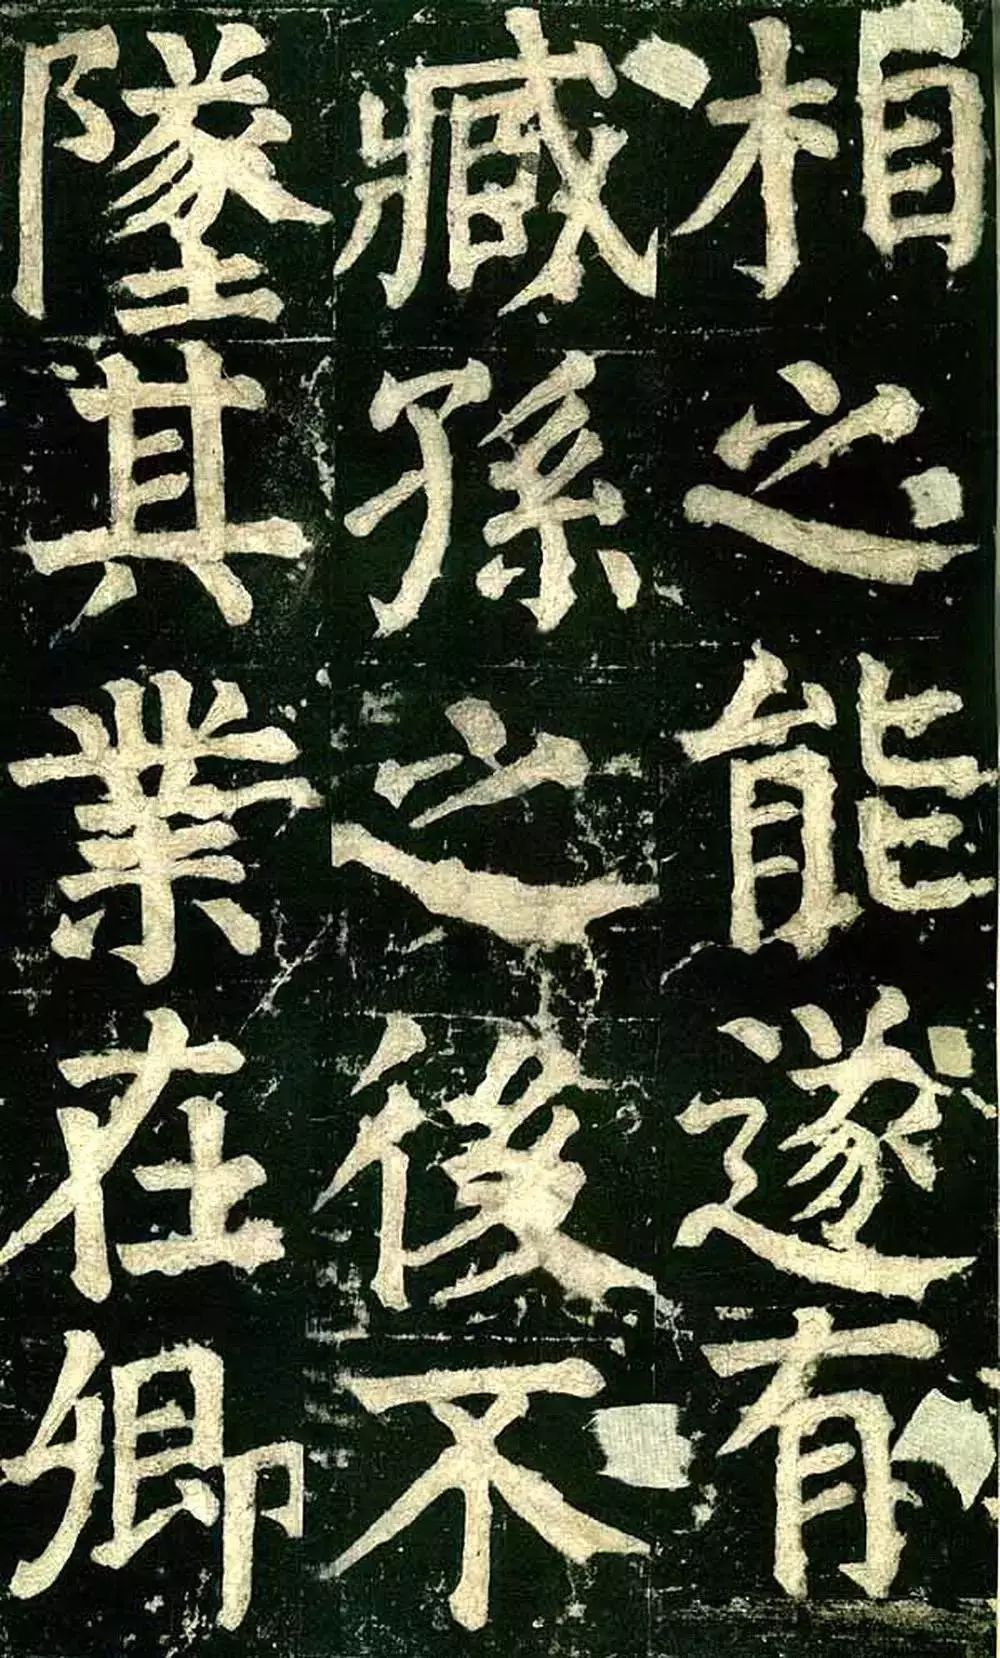 相之能遂有
臧孫之後不
墜其業在卿